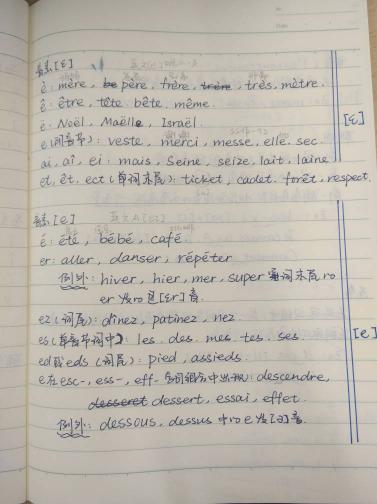 音素[ɛ]
è: mère, père, frère, très, mètre.
ê: être, tête, bête, même.
ë: Noël, Maëlle, Israël.
e(闭音节): veste, merci, messe, elle, sec.
ai, aî, ei: mais, Seine, seize, lait, laine
et, êt, ect(单词末尾): ticket, cadet, forêt, respect.
[ɛ]
音素[e]
é: été, bébé, café.
er: aller, danser, répéter
例外: hiver, hier, mer, super 词末尾
er 发[ɛr]音.
ez(词尾): dînez, patinez, nez.
es(单音节词中): les, des, mes, tes, ses.
ed或eds(词尾): pied, assieds.
e在esc-, ess-, eff- 中出现: descendre,
dessert, essai, effet.
例外: dessous, dessus 中e发[ə]音.
[e]